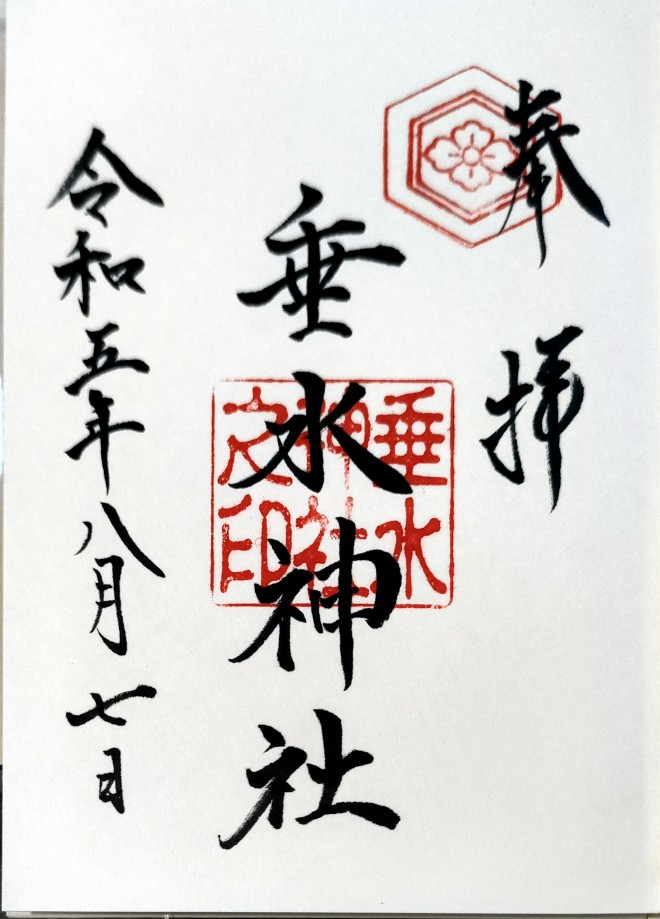 奉拝
垂水神社
垂水
神社
之印
令和五年八月七日